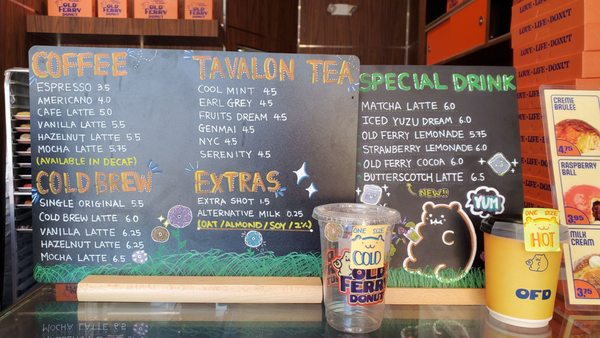 COFFEE
ESPRESSO 3.5
AMERICANO 4.0
CAFE LATTE 5.0
VANILLA LATTE 5.5
HAZELNUT LATTE 5.5
MOCHA LATTE 5.75
(AVAILABLE IN DECAF)
COLD BREW
SINGLE ORIGINAL 5.5
COLD BREW LATTE 6.0
VANILLA LATTE 6.25
HAZELNUT LATTE 6.25
MOCHA LATTE 6.5
TAVALON TEA
COOL MINT 4.5
EARL GREY 4.5
FRUITS DREAM 4.5
GENMAI 4.5
NYC 4.5
SERENITY 4.5
EXTRAS
EXTRA SHOT 1.5
ALTERNATIVE MILK 0.25
(OAT/ALMOND/SOY/2%)
SPECIAL DRINK
MATCHA LATTE 6.0
ICED YUZU DREAM 6.0
OLD FERRY LEMONADE 5.75
STRAWBERRY LEMONADE 6.0
OLD FERRY COCOA 6.0
BUTTERSCOTCH LATTE 6.5
NEW!!
YUM
ONE SIZE
COLD
OLD
FERRY
DONUT
ONE SIZE
HOT
OFD
CREME
BRULEE
4.75
RASPBERRY
BALL
3.95
MILK
CREAM
4.75
OLD
FERRY
DONUT
LOVE·LIFE·DONUT
LOVE·LIFE·DONUT
LOVE·LIFE·DONUT
LOVE·LIFE·DONUT